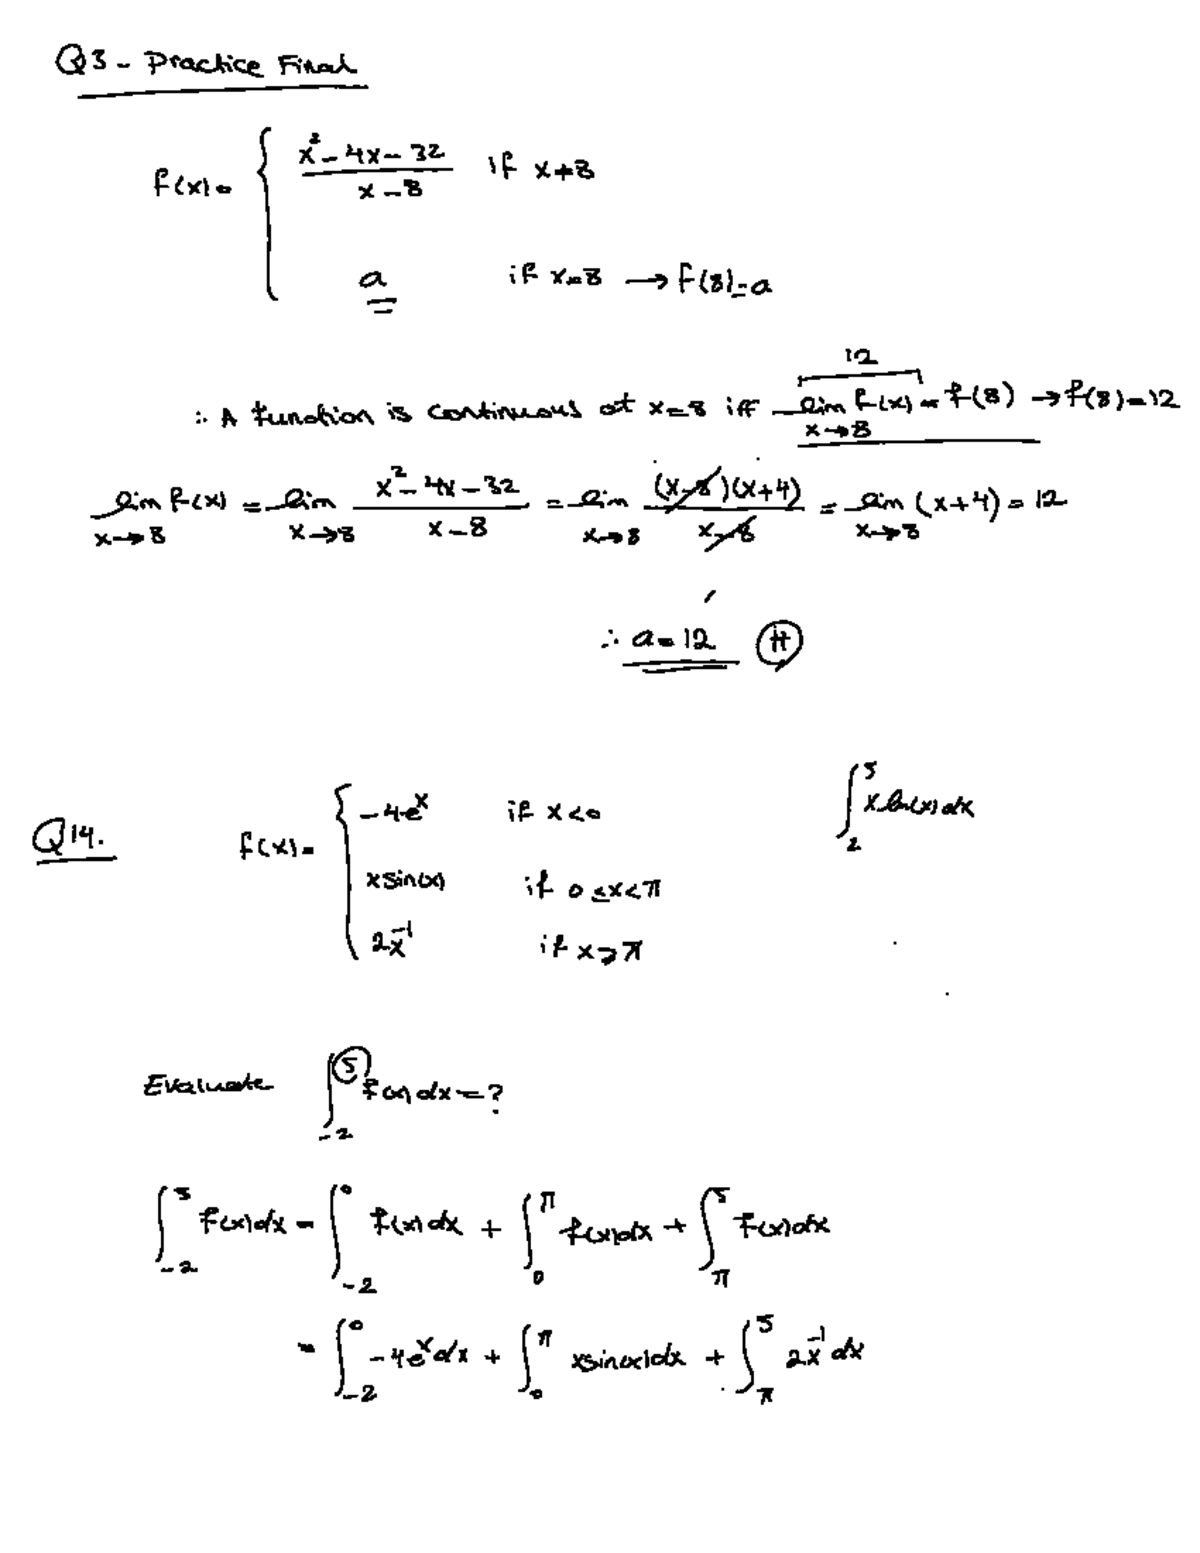 Q3 - Practice Final
f(x) = { (x² - 4x - 32)/(x - 8) if x ≠ 8
a if x = 8 → f(8) = a
12
∴ A function is continuous at x = 8 iff lim_{x→8} f(x) = f(8) → f(8) = 12
lim_{x→8} f(x) = lim_{x→8} (x² - 4x - 32)/(x - 8) = lim_{x→8} (x - 8)(x + 4)/(x - 8) = lim_{x→8} (x + 4) = 12
∴ a = 12 (H)
Q14. f(x) = { -4e^x if x < 0
x sin(x) if 0 ≤ x < π
2x^{-1} if x ≥ π
∫_2^5 x ln(x) dx
Evaluate ∫_{-2}^5 f(x) dx = ?
∫_{-2}^5 f(x) dx = ∫_{-2}^0 f(x) dx + ∫_0^π f(x) dx + ∫_π^5 f(x) dx
= ∫_{-2}^0 -4e^x dx + ∫_0^π x sin(x) dx + ∫_π^5 2x^{-1} dx